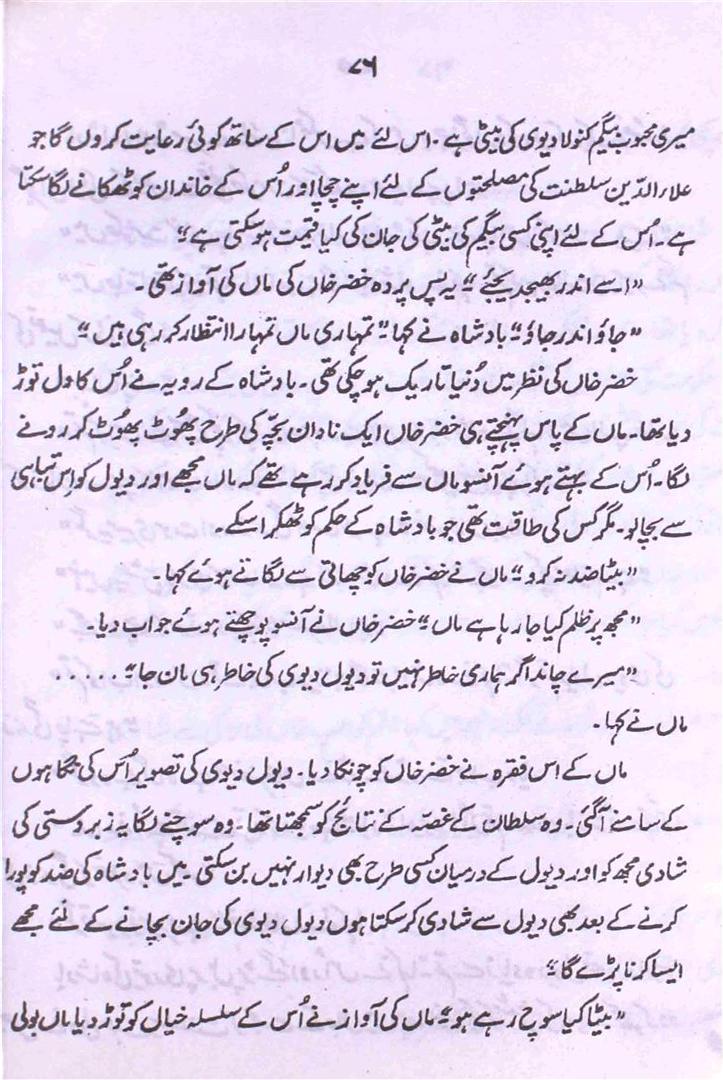 ۷۶
میری محبوب بیگم کنولا دیوی کی بیٹی ہے۔ اس لئے میں اس کے ساتھ کوئی رعایت کروں گا جو
علاءالدّین سلطنت کی مصلحتوں کے لئے اپنے چچا اور اُس کے خاندان کو ٹھکانے لگا سکتا
ہے۔ اُس کے لئے اپنی کسی بیگم کی بیٹی کی جان کی کیا قیمت ہو سکتی ہے“
”اسے اندر بھیجدیجئے“ یہ پس پردہ خضر خاں کی ماں کی آواز تھی۔
”جاؤ اندر جاؤ“ بادشاہ نے کہا ”تمہاری ماں تمہارا انتظار کر رہی ہیں“
خضر خاں کی نظر میں دُنیا تاریک ہو چکی تھی۔ بادشاہ کے رویہ نے اُس کا دل توڑ
دیا تھا۔ ماں کے پاس پہنچتے ہی خضر خاں ایک نادان بچّہ کی طرح پھُوٹ پھُوٹ کر رونے
لگا۔ اُس کے بہتے ہوئے آنسو ماں سے فریاد کر رہے تھے کہ ماں مجھے اور دیول کو اِس تباہی
سے بچا لو۔ مگر کس کی طاقت تھی جو بادشاہ کے حکم کو ٹھکرا سکے۔
”بیٹا ضد نہ کرو“ ماں نے خضر خاں کو چھاتی سے لگاتے ہوئے کہا۔
”مجھ پر ظلم کیا جا رہا ہے ماں“ خضر خاں نے آنسو پوچھتے ہوئے جواب دیا۔
”میرے چاند اگر ہماری خاطر نہیں تو دیول دیوی کی خاطر ہی مان جا“.....
ماں نے کہا۔
ماں کے اس فقرہ نے خضر خاں کو چونکا دیا۔ دیول دیوی کی تصویر اُس کی نگاہوں
کے سامنے آگئی۔ وہ سلطان کے غصّہ کے نتائج کو سمجھتا تھا۔ وہ سوچنے لگا یہ زبردستی کی
شادی مجھ کو اور دیول کے درمیان کسی طرح بھی دیوار نہیں بن سکتی۔ میں بادشاہ کی ضد کو پورا
کرنے کے بعد بھی دیول سے شادی کر سکتا ہوں دیول دیوی کی جان بچانے کے لئے مجھے
ایسا کرنا پڑے گا“
”بیٹا کیا سوچ رہے ہو“ ماں کی آواز نے اُس کے سلسلہ خیال کو توڑ دیا ماں بولی